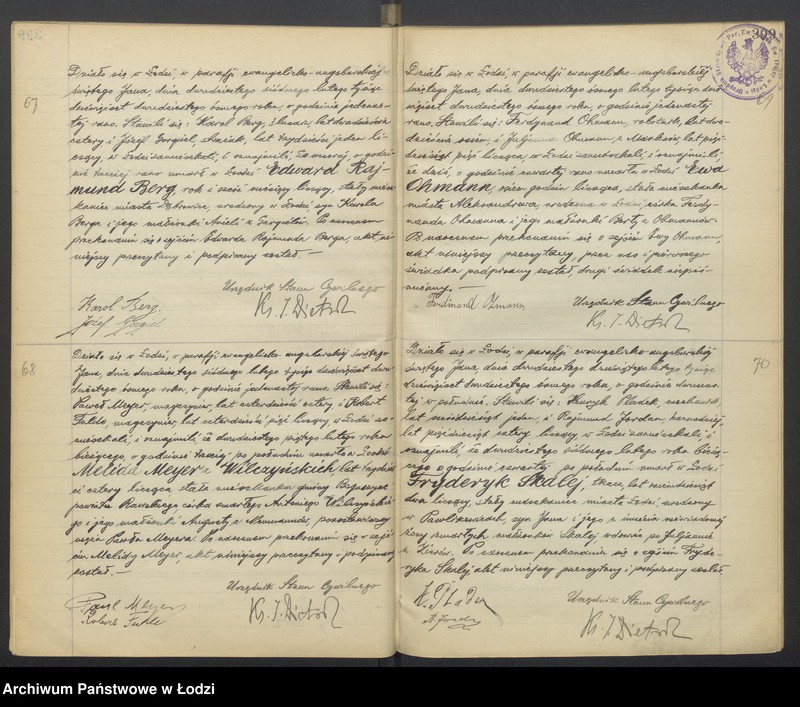 67
Działo się w Łodzi, w parafji ewangelicko-augsburskiej
świętego Jana, dnia dwudziestego siódmego lutego tysiąc
dziewięćset dwudziestego ósmego roku, o godzinie jedenas-
tej rano. Stawili się: Karol Berg, ślusarz, lat dwadzieścia
cztery i Józef Gorgiel, lat trzydzieści jeden li-
czący, w Łodzi zamieszkali, i oznajmili, że wczoraj, o godzi-
nie trzeciej rano umarł w Łodzi Edward Raj-
mund Berg, rok i sześć miesięcy liczący, stały miesz-
kaniec miasta Dąbrowice, urodzony w Łodzi syn Karola
Berga i jego małżonki Anieli z Gorgielów. Po naocznem
przekonaniu się o zejściu Edwarda Rajmunda Berga, akt ni-
niejszy przeczytany i podpisany został. —
Urzędnik Stanu Cywilnego
Karol Berg.
Ks. J. Dietrich
Józef
68
Działo się w Łodzi, w parafji ewangelicko-augsburskiej świętego
Jana, dnia dwudziestego siódmego lutego tysiąc dziewięćset dwu-
dziestego ósmego roku, o godzinie jedenastej rano. Stawili się:
Paweł Meyer, magazynier, lat czterdzieści cztery, i Robert
magazynier, lat czterdzieści pięć liczący w Łodzi za-
mieszkali, i oznajmili, że dwudziestego piątego lutego roku
bieżącego, o godzinie trzeciej po południu umarła w Łodzi
Melida Meyer z Wilczyńskich, lat trzydzieś-
ci cztery licząca stała mieszkanka gminy Boguszyce
powiatu Rawskiego, córka zmarłego Antoniego Wilczyńskie-
go i jego małżonki Augusty, z pozostawiwszy
męża Pawła Meyera. Po naocznem przekonaniu się o zejś-
ciu Melidy Meyer, akt niniejszy przeczytany i podpisany
został. —
Urzędnik Stanu Cywilnego
Paul Meyer
Ks. J. Dietrich
Robert
69
Działo się w Łodzi, w parafji ewangelicko-augsburskiej
świętego Jana, dnia dwudziestego ósmego lutego tysiąc dzie-
więćset dwudziestego ósmego roku, o godzinie jedenastej
rano. Stawili się: Ferdynand Ohmann, robotnik, lat dwa-
dzieścia osiem, i Juljanna Ohmann, z lat pięć-
dziesiąt pięć licząca, w Łodzi zamieszkali, i oznajmili,
że dziś, o godzinie czwartej rano umarła w Łodzi Ewa
Ohmann, osiem godzin licząca, stała mieszkanka
miasta Aleksandrowa, urodzona w Łodzi, córka Ferdy-
nanda Ohmanna i jego małżonki Berty, z Ohmannów.
Po naocznem przekonaniu się o zejściu Ewy Ohmann,
akt niniejszy przeczytany, przez nas i pierwszego
świadka podpisany został, drugi świadek niepiś-
mienny. —
Ferdinand Ohmann
Urzędnik Stanu Cywilnego
Ks. J. Dietrich
70
Działo się w Łodzi, w parafji ewangelicko-augsburskiej
świętego Jana, dnia dwudziestego dziewiątego lutego tysiąc
dziewięćset dwudziestego ósmego roku, o godzinie dwunas-
tej w południe. Stawili się: Henryk
lat sześćdziesiąt jeden, i Rajmund Jordan,
lat pięćdziesiąt cztery liczący w Łodzi zamieszkali i
oznajmili, że dwudziestego siódmego lutego roku bieżą-
cego o godzinie czwartej po południu umarł w Łodzi
Fryderyk Skalej, tkacz, lat sześćdziesiąt
dwa liczący, stały mieszkaniec miasta Łodzi, urodzony
w syn Jana i jego z imienia niewiadomej
żony zmarłych małżonków Skalej, wdowiec po Juljannie
z Po naocznem przekonaniu się o zejściu Fryde-
ryka Skalej akt niniejszy przeczytany i podpisany został.
Urzędnik Stanu Cywilnego
Ks. J. Dietrich
Archiwum Państwowe w Łodzi